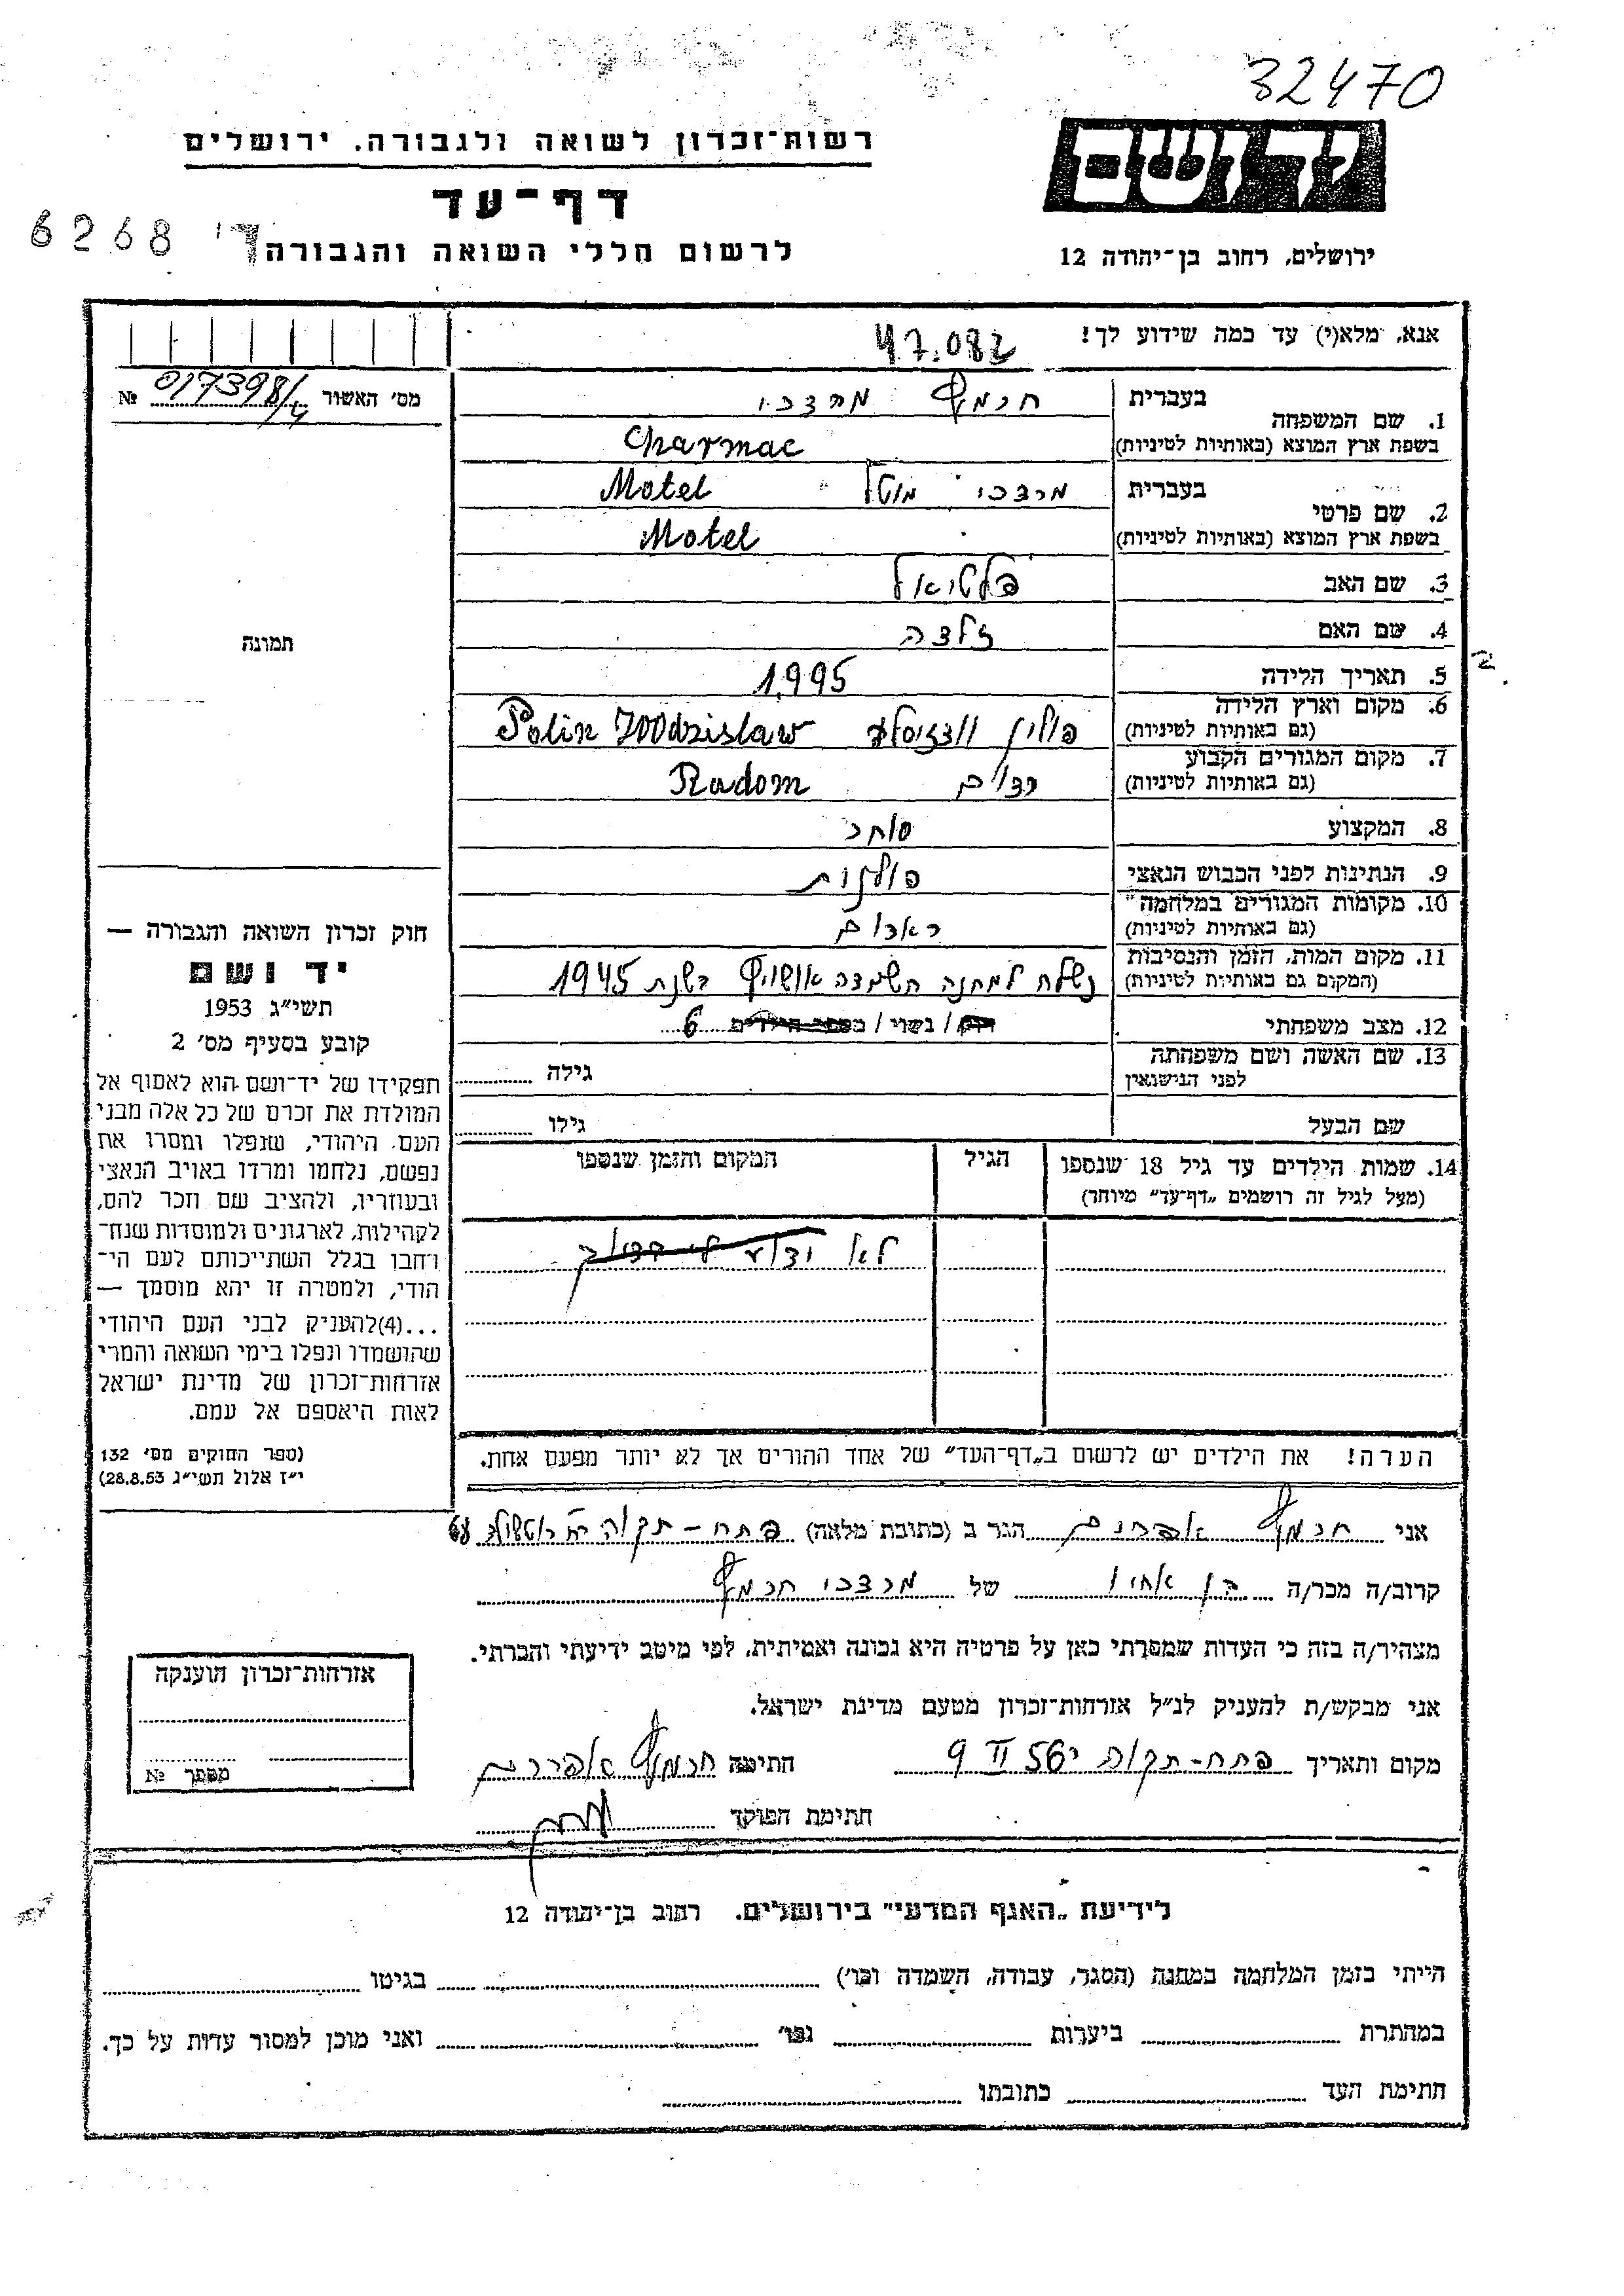 32470
רשות־זכרון לשואה ולגבורה. ירושלים
יד ושם
דף־עד
6268 ד'
לרשום חללי השואה והגבורה
ירושלים, רחוב בן־יהודה 12
אנא, מלא(י) עד כמה שידוע לך!
47.082
מס' האשור 017398/4 №
1. שם המשפחה
בעברית חרמץ מרדכי
בשפת ארץ המוצא (באותיות לטיניות) Charmac
2. שם פרטי
בעברית מרדכי מוטל Motel
בשפת ארץ המוצא (באותיות לטיניות) Motel
3. שם האב פלטיאל
4. שם האם זלדה
תמונה
5. תאריך הלידה 1995
6. מקום וארץ הלידה
(גם באותיות לטיניות) פולין Polin Wodzislaw
7. מקום המגורים הקבוע
(גם באותיות לטיניות) רדום Radom
8. המקצוע סוחר
9. הנתינות לפני הכבוש הנאצי פולנית
10. מקומות המגורים במלחמה
(גם באותיות לטיניות) ראדום
11. מקום המות, הזמן והנסיבות
(המקום גם באותיות לטיניות) נשלח למחנה השמדה אושויץ בשנת 1945
12. מצב משפחתי רוק / נשוי / מספר הילדים 6
13. שם האשה ושם משפחתה
לפני הנישואין
גילה
שם הבעל גילו
14. שמות הילדים עד גיל 18 שנספו הגיל המקום והזמן שנספו
(מעל לגיל זה רושמים „דף־עד" מיוחד)
לא ידוע לי
הערה! את הילדים יש לרשום ב„דף־העד" של אחד ההורים אך לא יותר מפעם אחת.
חוק זכרון השואה והגבורה —
יד ושם
תשי"ג 1953
קובע בסעיף מס' 2
תפקידו של יד־ושם הוא לאסוף אל
המולדת את זכרם של כל אלה מבני
העם היהודי, שנפלו ומסרו את
נפשם, נלחמו ומרדו באויב הנאצי
ובעוזריו, ולהציב שם וזכר להם,
לקהילות, לארגונים ולמוסדות שנח־
רחבו בגלל השתייכותם לעם הי־
הודי, ולמטרה זו יהא מוסמך —
...(4)להעניק לבני העם היהודי
שהושמדו ונפלו בימי השואה והמרי
אזרחות־זכרון של מדינת ישראל
לאות היאספם אל עמם.
(ספר החוקים מס' 132
י"ז אלול תשי"ג 28.8.53)
אני חרמץ אפרים הגר ב (כתובת מלאה) פתח-תקוה
קרוב/ה מכר/ה בן אחיו של מרדכי חרמץ
מצהיר/ה בזה כי העדות שמסרתי כאן על פרטיה היא נכונה ואמיתית, לפי מיטב ידיעתי והכרתי.
אני מבקש/ת להעניק לנ"ל אזרחות־זכרון מטעם מדינת ישראל.
מקום ותאריך פתח-תקוה 9 II 56 חתימה חרמץ אפרים
חתימת הפוקד
אזרחות־זכרון הוענקה
מספר №
לידיעת „האגף המדעי" בירושלים. רחוב בן־יהודה 12
הייתי בזמן המלחמה במחנה (הסגר, עבודה, השמדה וכו') בגיטו
במחתרת ביערות וכו' ואני מוכן למסור עדות על כך.
חתימת העד כתובתו